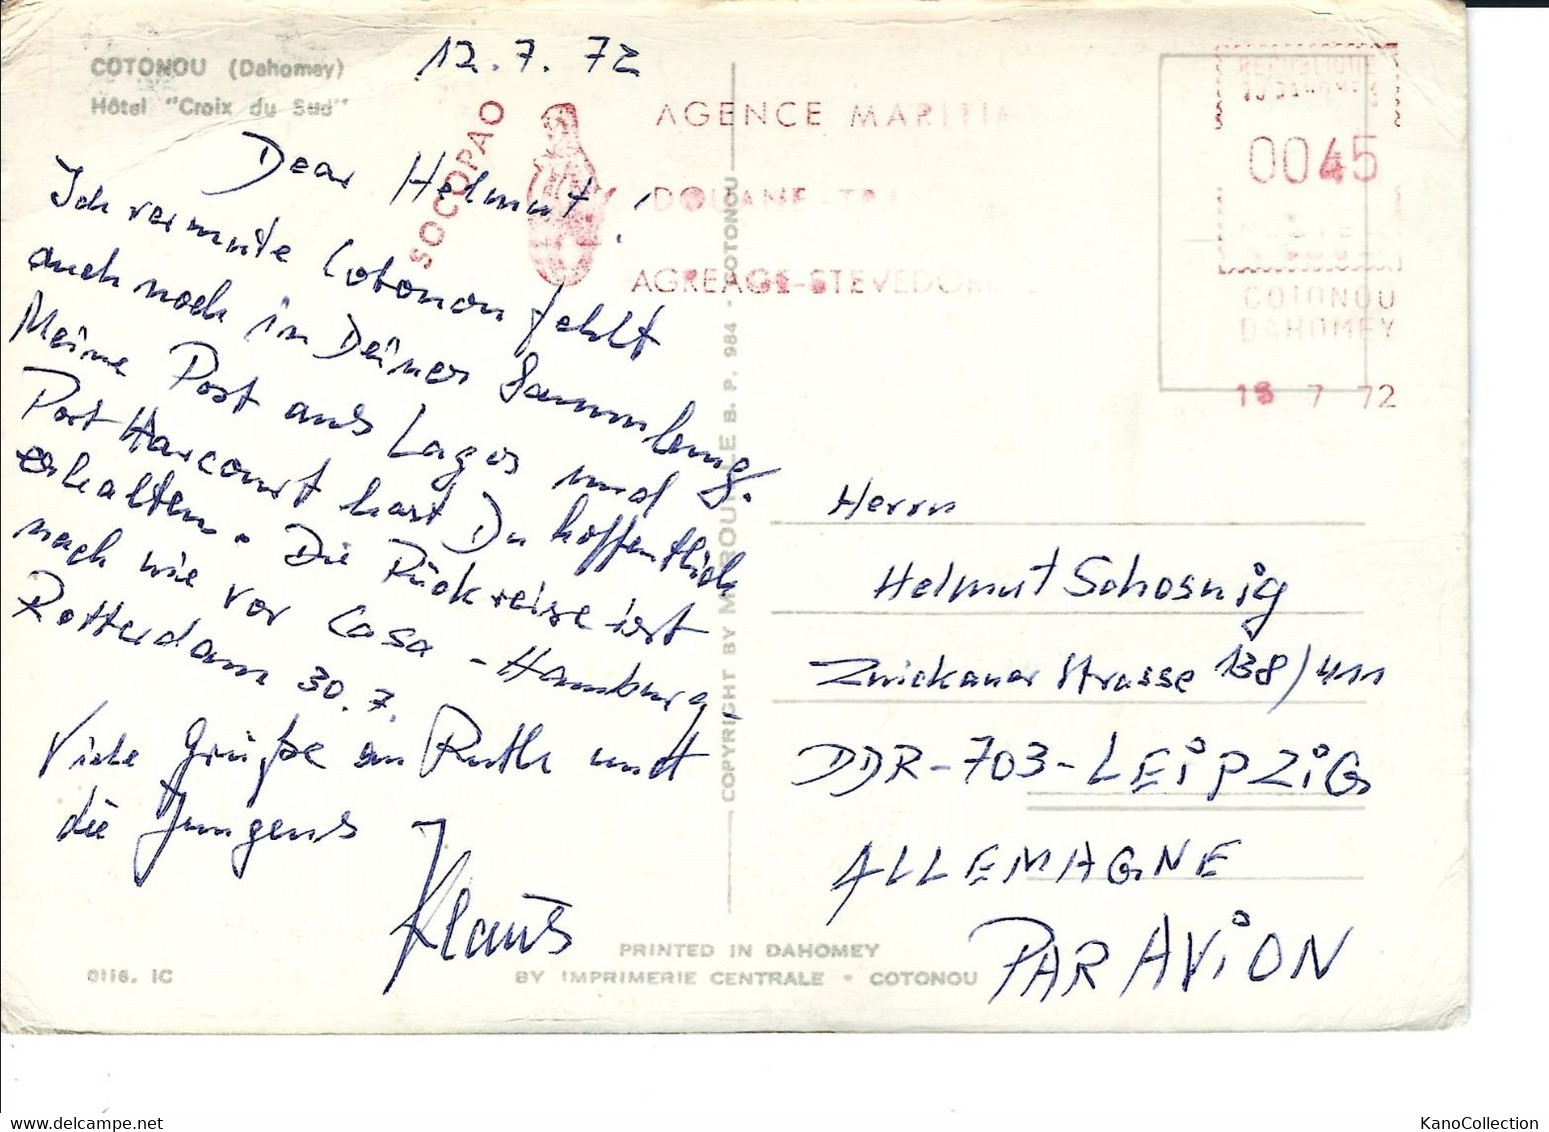 COTONOU (Dahomey)
Hôtel "Croix du Sud"
12.7.72
Dear Helmut!
Ich vermute Cotonou fehlt
auch noch in Deiner Sammlung.
Meine Post aus Lagos und
Port Harcourt hast Du hoffentlich
erhalten. Die Rückreise ist
nach wie vor Casa - Hamburg,
Rotterdam 30.7.
Viele Grüße an Ruth und
die Jungens
Klaus
0116. IC
SOCOPAO
AGENCE MARITIM
DOUANE-TRA
AGREAGE-STEVEDOR
REPUBLIQUE
DU DAHOMEY
0045
POSTES
COTONOU
DAHOMEY
7 72
COPYRIGHT BY M. B. P. 984 - COTONOU
Herrn
Helmut Schosnig
Zwickauer Strasse 138/411
DDR-703-LEiPZiG
ALLEMAGNE
PAR AViON
PRINTED IN DAHOMEY
BY IMPRIMERIE CENTRALE - COTONOU
KanoCollection